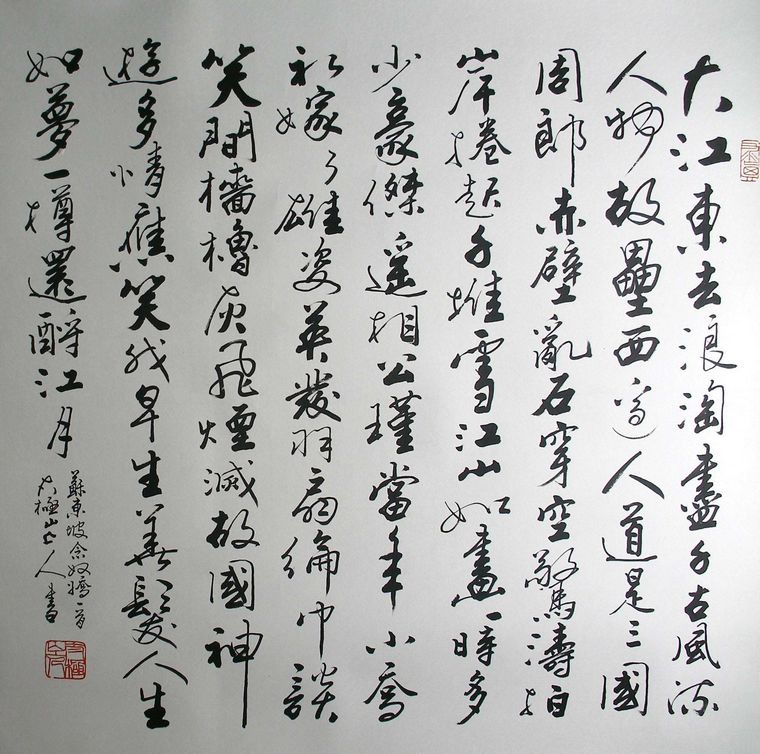 大江東去浪淘盡千古風流
人物故壘西邊人道是三國
周郎赤壁亂石穿空驚濤拍
岸捲起千堆雪江山如畫一時多
少豪傑遥相公瑾當年小喬
初嫁了雄姿英發羽扇綸巾談
笑間檣櫓灰飛煙滅故國神
遊多情應笑我早生華髮人生
如夢一樽還酹江月
蘇東坡念奴嬌一首
極山人書